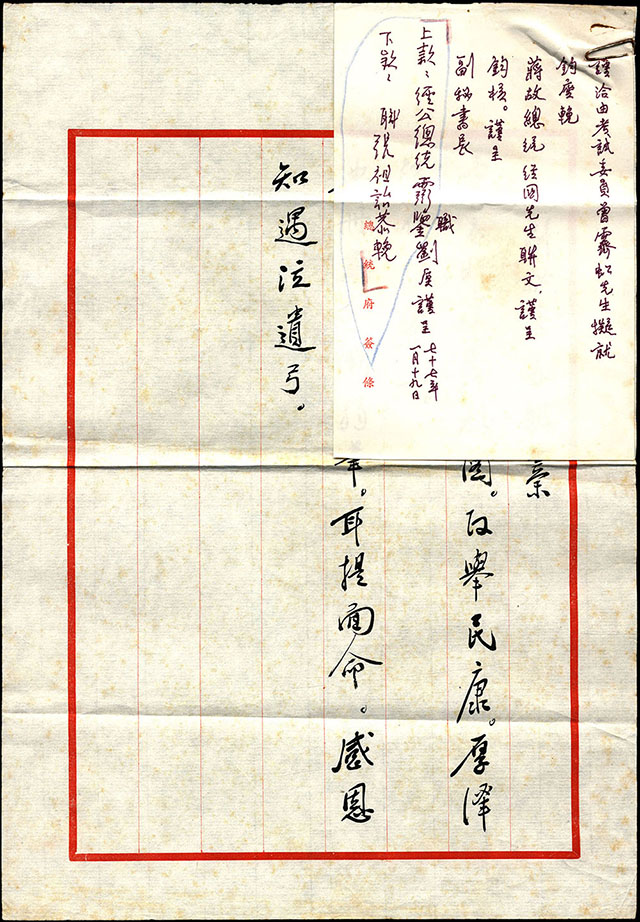 謹洽由考試委員曾霽虹先生撰就
鈞座輓
蔣故總統經國先生聯文,謹呈
鈞核。謹呈
副秘書長
職劉 謹呈 七十七年一月十九日
上款:經公總統靈鑒
下款: 職張祖詒恭輓
總統府簽條
國。政舉民康。厚澤
年。耳提面命。感恩
知遇泣遺弓。